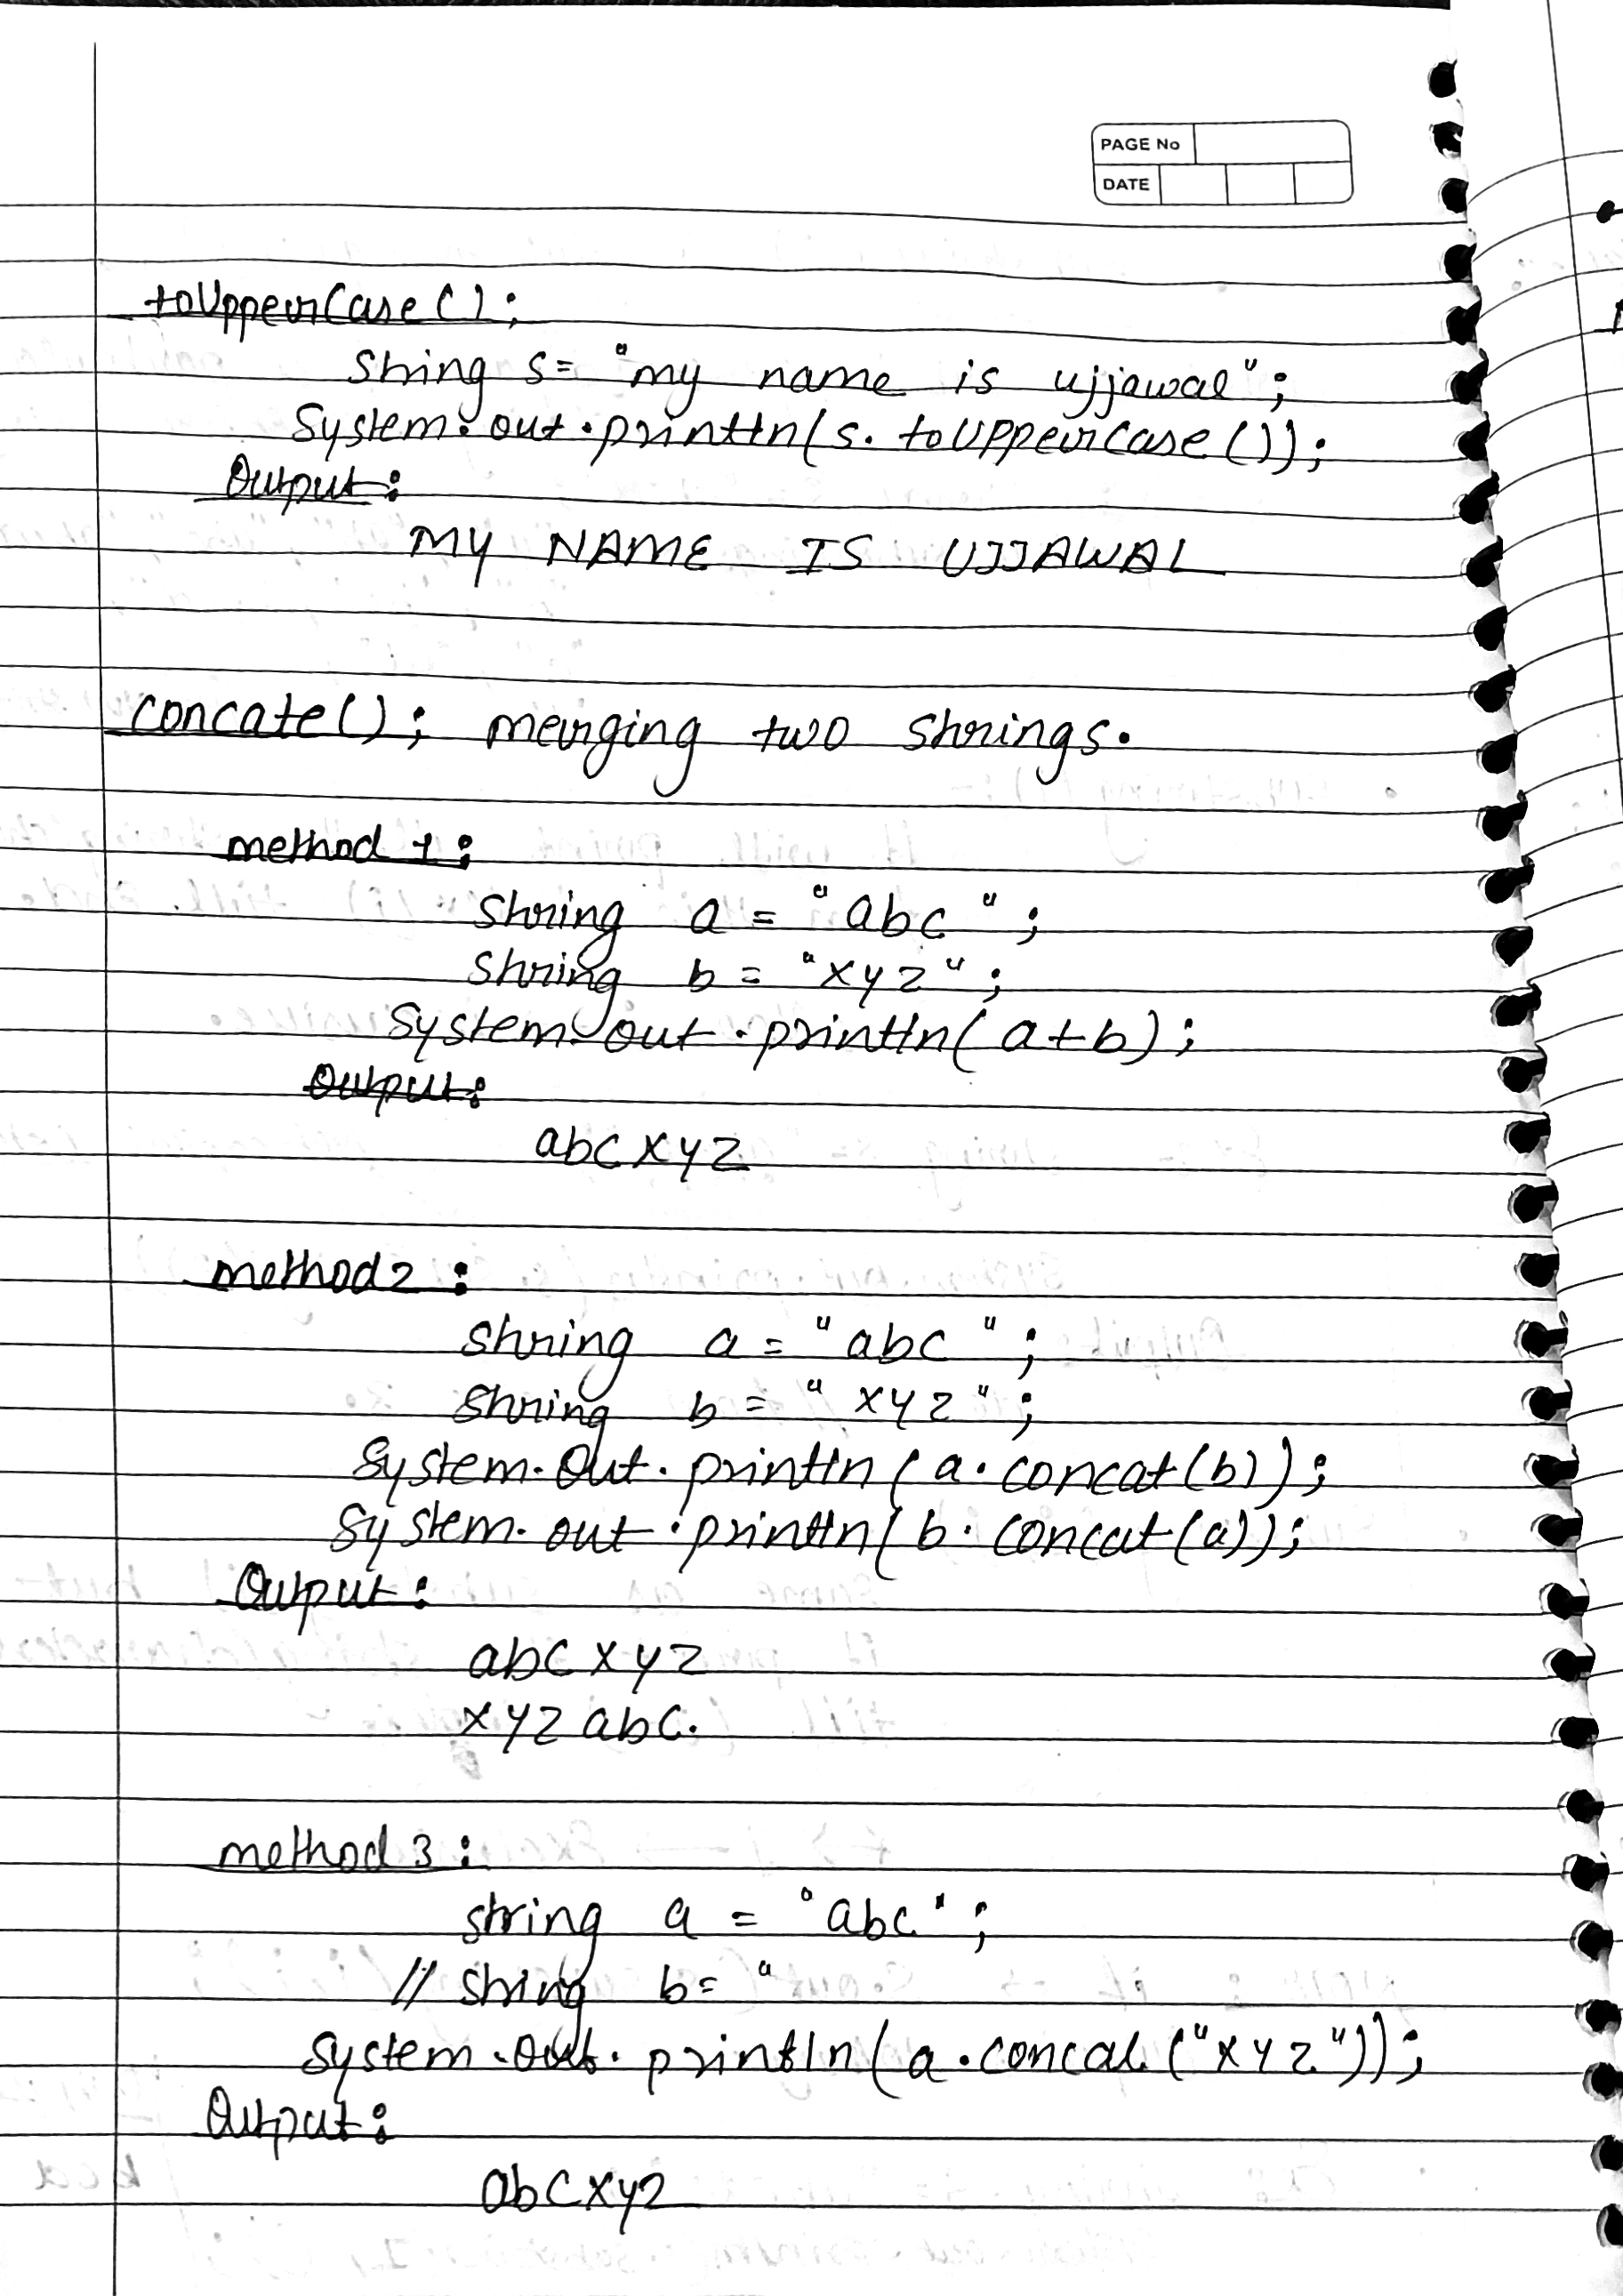 PAGE No
DATE
toUpperCase();
String s= "my name is ujjawal";
System.out.println(s.toUpperCase());
Output:
MY NAME IS UJJAWAL
concate(); merging two Strings.
method 1:
String a = "abc";
String b = "xyz";
System.out.println(a+b);
Output:
abcxyz
method 2:
String a = "abc";
String b = "xyz";
System.Out.println(a.concat(b));
System.out.println(b.concat(a));
Output:
abcxyz
xyzabc.
method 3:
string a = "abc";
// String b= "
System.out.println(a.concat("xyz"));
Output:
abcxyz